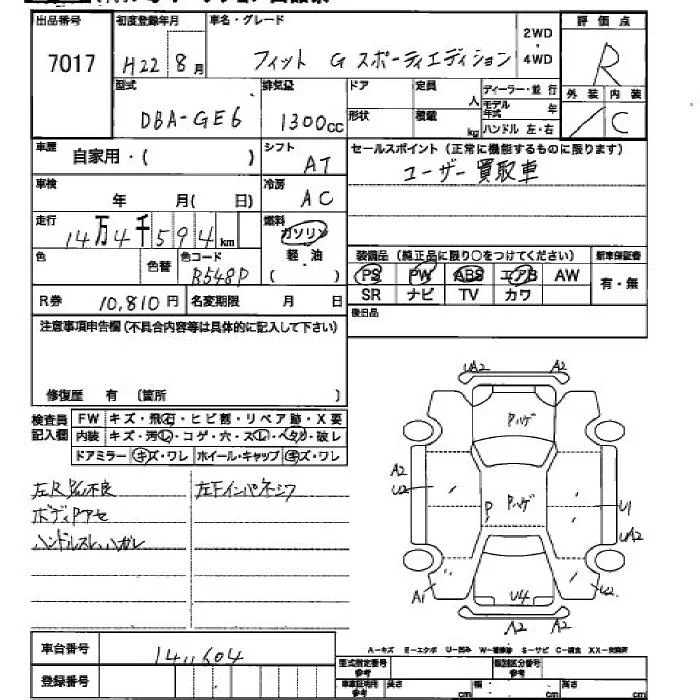 出品番号 初度登録年月 車名・グレード 評価点
7017 H22 8月 フィット G スポーティエディション 2WD・4WD R
型式 排気量 ドア 定員 人 ディーラー・並行 外装 内装
DBA-GE6 1300cc 形状 積載 kg モデル年式 年 ハンドル 左・右 / C
車歴 自家用・( ) シフト AT セールスポイント (正常に機能するものに限ります)
ユーザー買取車
車検 年 月( 日) 冷房 AC
走行 14万4千594km 燃料 ガソリン 軽・油 ( )
色 色替 色コード B548P 装備品 (純正品に限り○をつけてください) 新車保証書
PS PW ABS エアB AW 有・無
R券 10,810円 名変期限 月 日 SR ナビ TV カワ
注意事項申告欄 (不具合内容等は具体的に記入して下さい) 後日品
修復歴 有 〔箇所 〕
検査員記入欄 FW キズ・飛石・ヒビ割・リペア跡・X要
内装 キズ・汚レ・コゲ・穴・スレ・ヘタリ・破レ
ドアミラー キズ・ワレ ホイール・キャップ キズ・ワレ
ボディPアセ
ハンドルスレ、ハガレ
UA2 A2
Pハゲ
A2
U2
P Pハゲ
U1
UA2
A1 U4 U2
A2 A2
A-キズ E-エクボ U-凹み W-補修跡 S-サビ C-腐食 XX-交換済
車台番号 1411604
型式指定番号 参考 類別区分番号 参考
登録番号 車庫証明用 参考 長さ cm 幅 cm 高さ cm